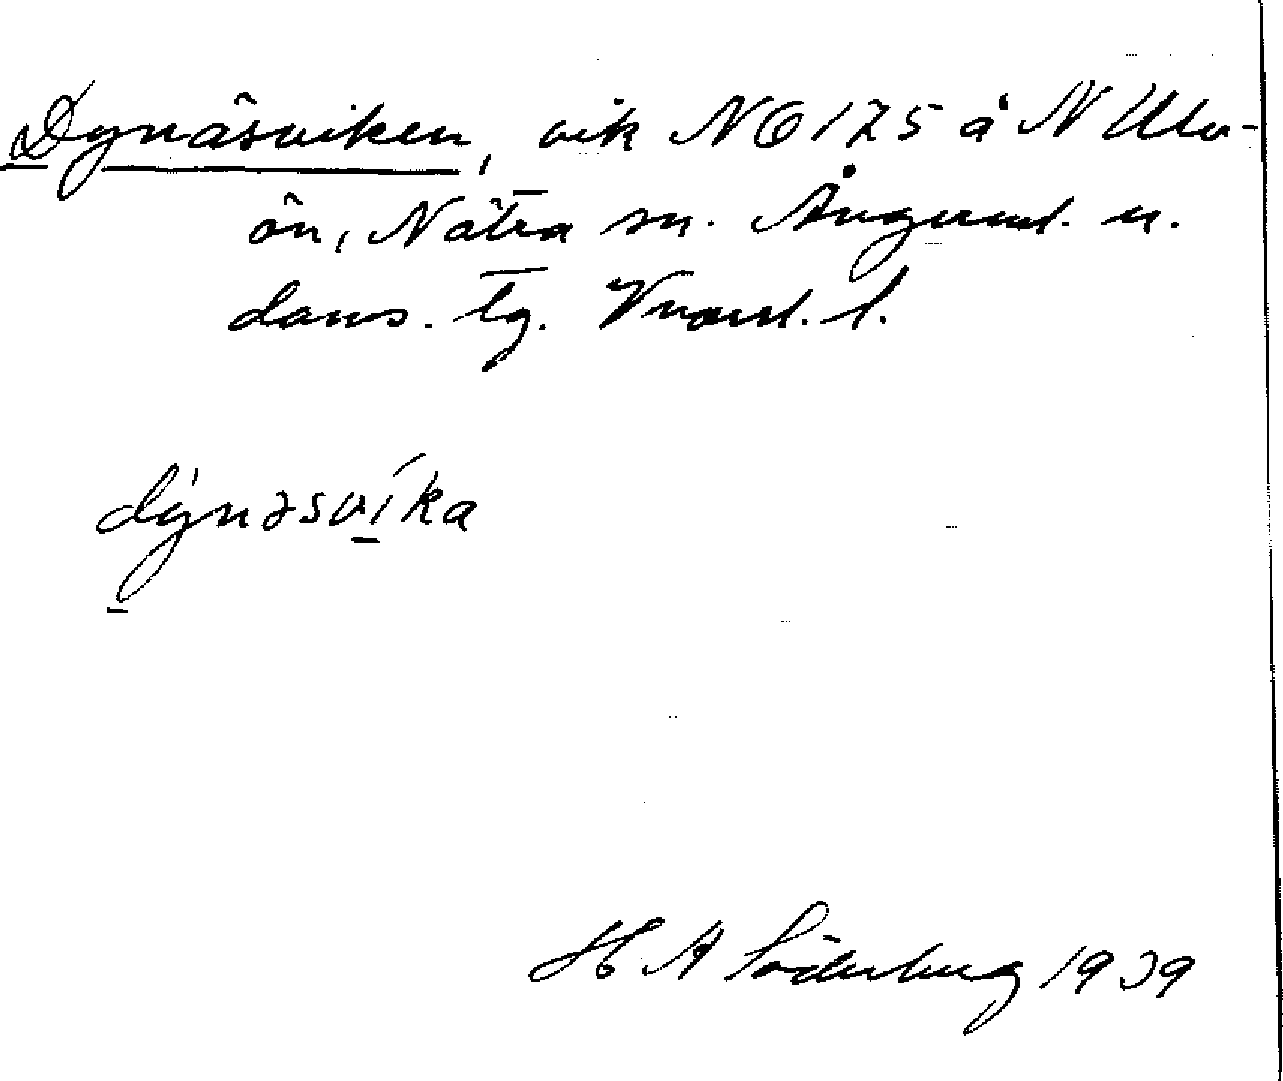 Dynäsviken, vik NO 175 å N Ulv-
ön, Nätra sn. Ångerml. n.
doms. tg. Vnorrl. l.
dýnəsvíka
H A Söderberg 1939